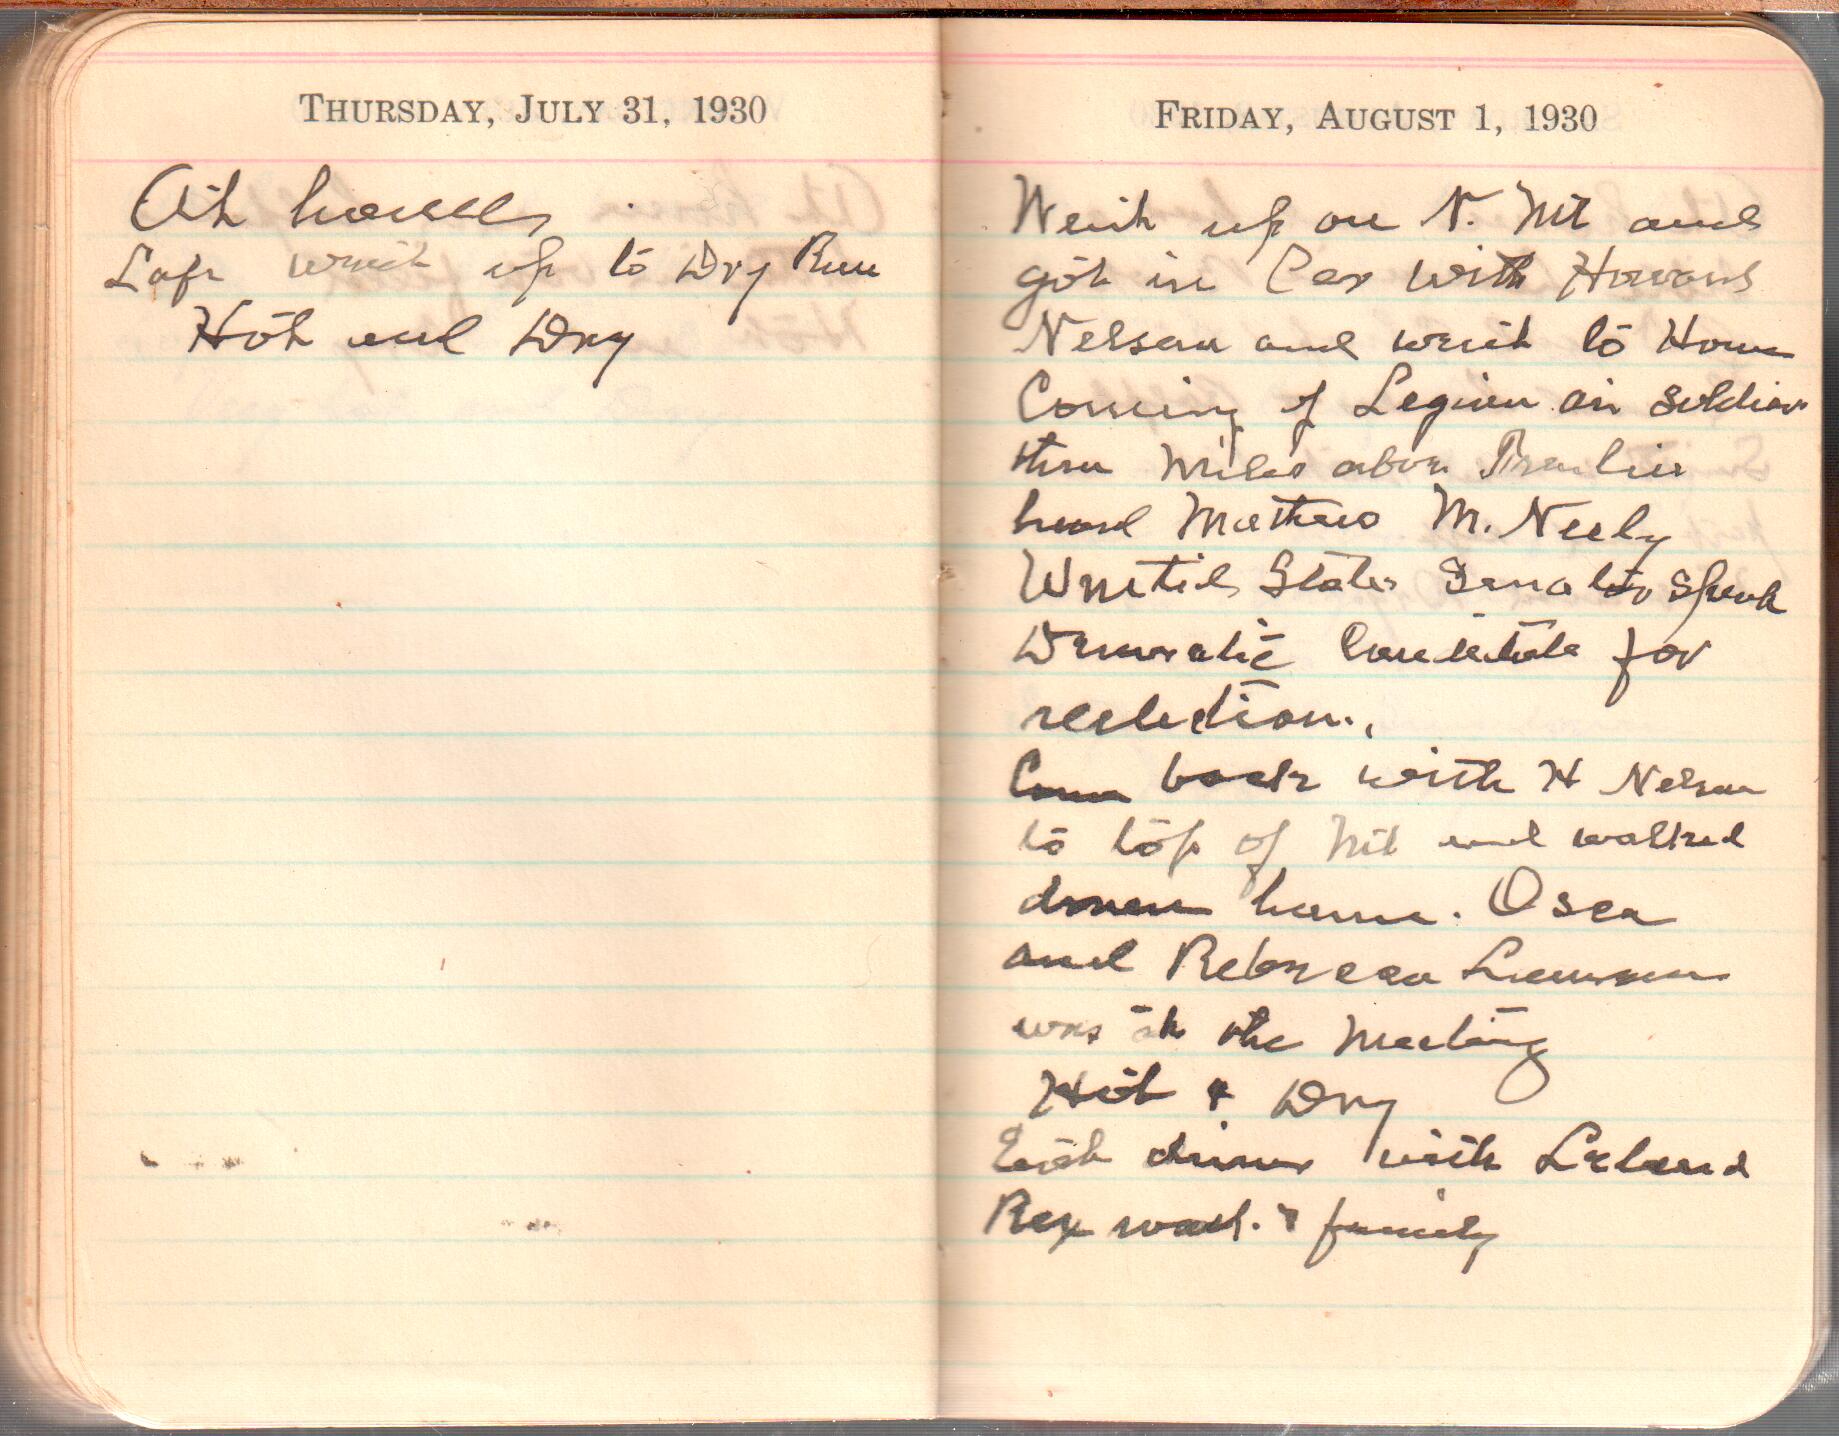 THURSDAY, JULY 31, 1930
At home
Lafe went up to Dry Run
Hot and Dry
FRIDAY, AUGUST 1, 1930
Went up on N. Mt and
got in Car with Howard
Nelson and went to Home
Coming of Legion on soldier
three Miles above
heard Mathew M. Neely
United States Senator Speak
Democratic Candidate for
reelection.
Came back with H Nelson
to top of Mt and walked
down home. Osca
and Rebecca
was at the Meeting
Hot & Dry
Eat dinner with Leland
Rex & family